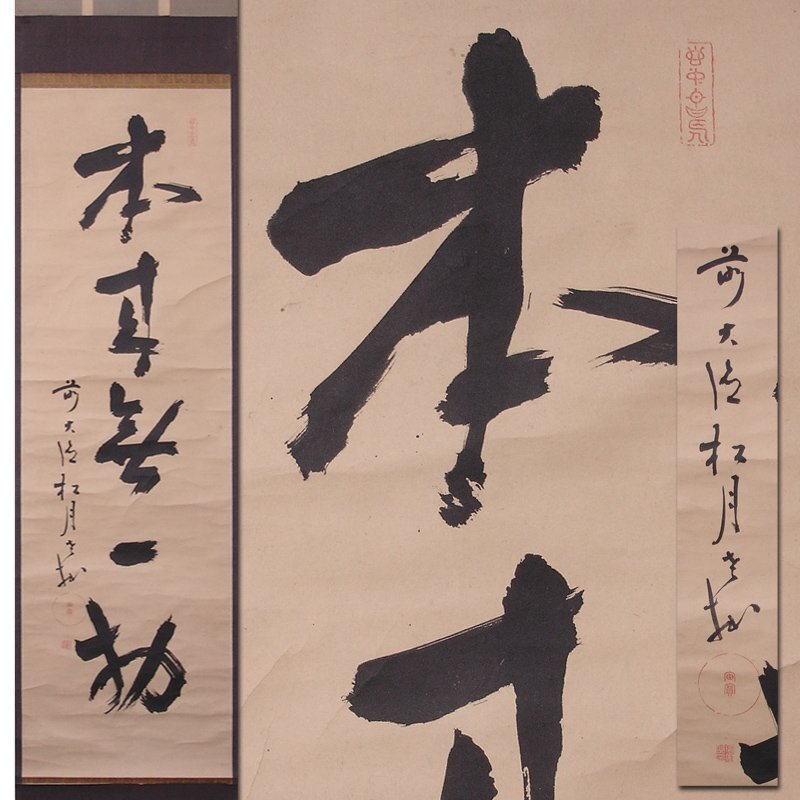 本来無一物
前大徳松月老拙